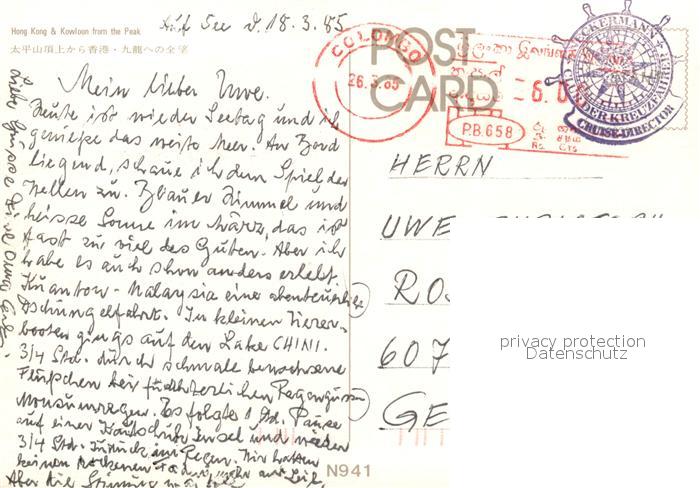 Hong Kong & Kowloon from the Peak
太平山頂上から香港・九龍への全望
Auf See d. 18.3.85
Mein lieber Uwe.
Heute ist wieder Seetag und ich
genieße das weite Meer. An Bord
liegend, schaue ich dem Spiel der
Wellen zu. Blauer Himmel und
heisse Sonne im März, das ist
fast zu viel des Guten. Aber ich
habe es auch schon anders erlebt.
Kuantan - Malaysia eine abenteuerliche
Dschungelfahrt. In kleinen
booten gings auf den Lake CHINI.
3/4 Std. durch schmale
Flüßchen bei fürchterlichen Regengüssen
Monsunregen. Es folgte 1 Std. Pause
auf einer Insel und wieder
3/4 Std. zurück im Regen. Wir hatten
keinen trockenen Faden mehr am Leib.
Aber die Stimmung war toll
Liebe Grüsse Deine
POST
CARD
COLOMBO
26.3.85
ශ්‍රී ලංකා இலங்கை
P.B.658
Rs. Cts.
NECKERMANN
CLUB DER KREUZFAHRER
CRUISE-DIRECTOR
HERRN
UWE
RO
607
GE
privacy protection
Datenschutz
N941